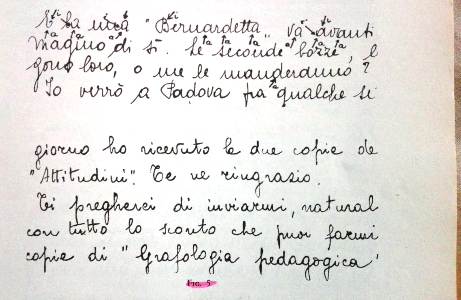 E la mia "Bernardetta" va avanti
magino di sì. Le seconde bozze, l
gono loro, o me le manderanno?
Io verrò a Padova fra qualche si
giorno ho ricevuto le due copie de
"Attitudini". Te ne ringrazio.
Ti pregherei di inviarmi, natural
con tutto lo sconto che puoi farmi
copie di "Grafologia pedagogica"
FIG. 5